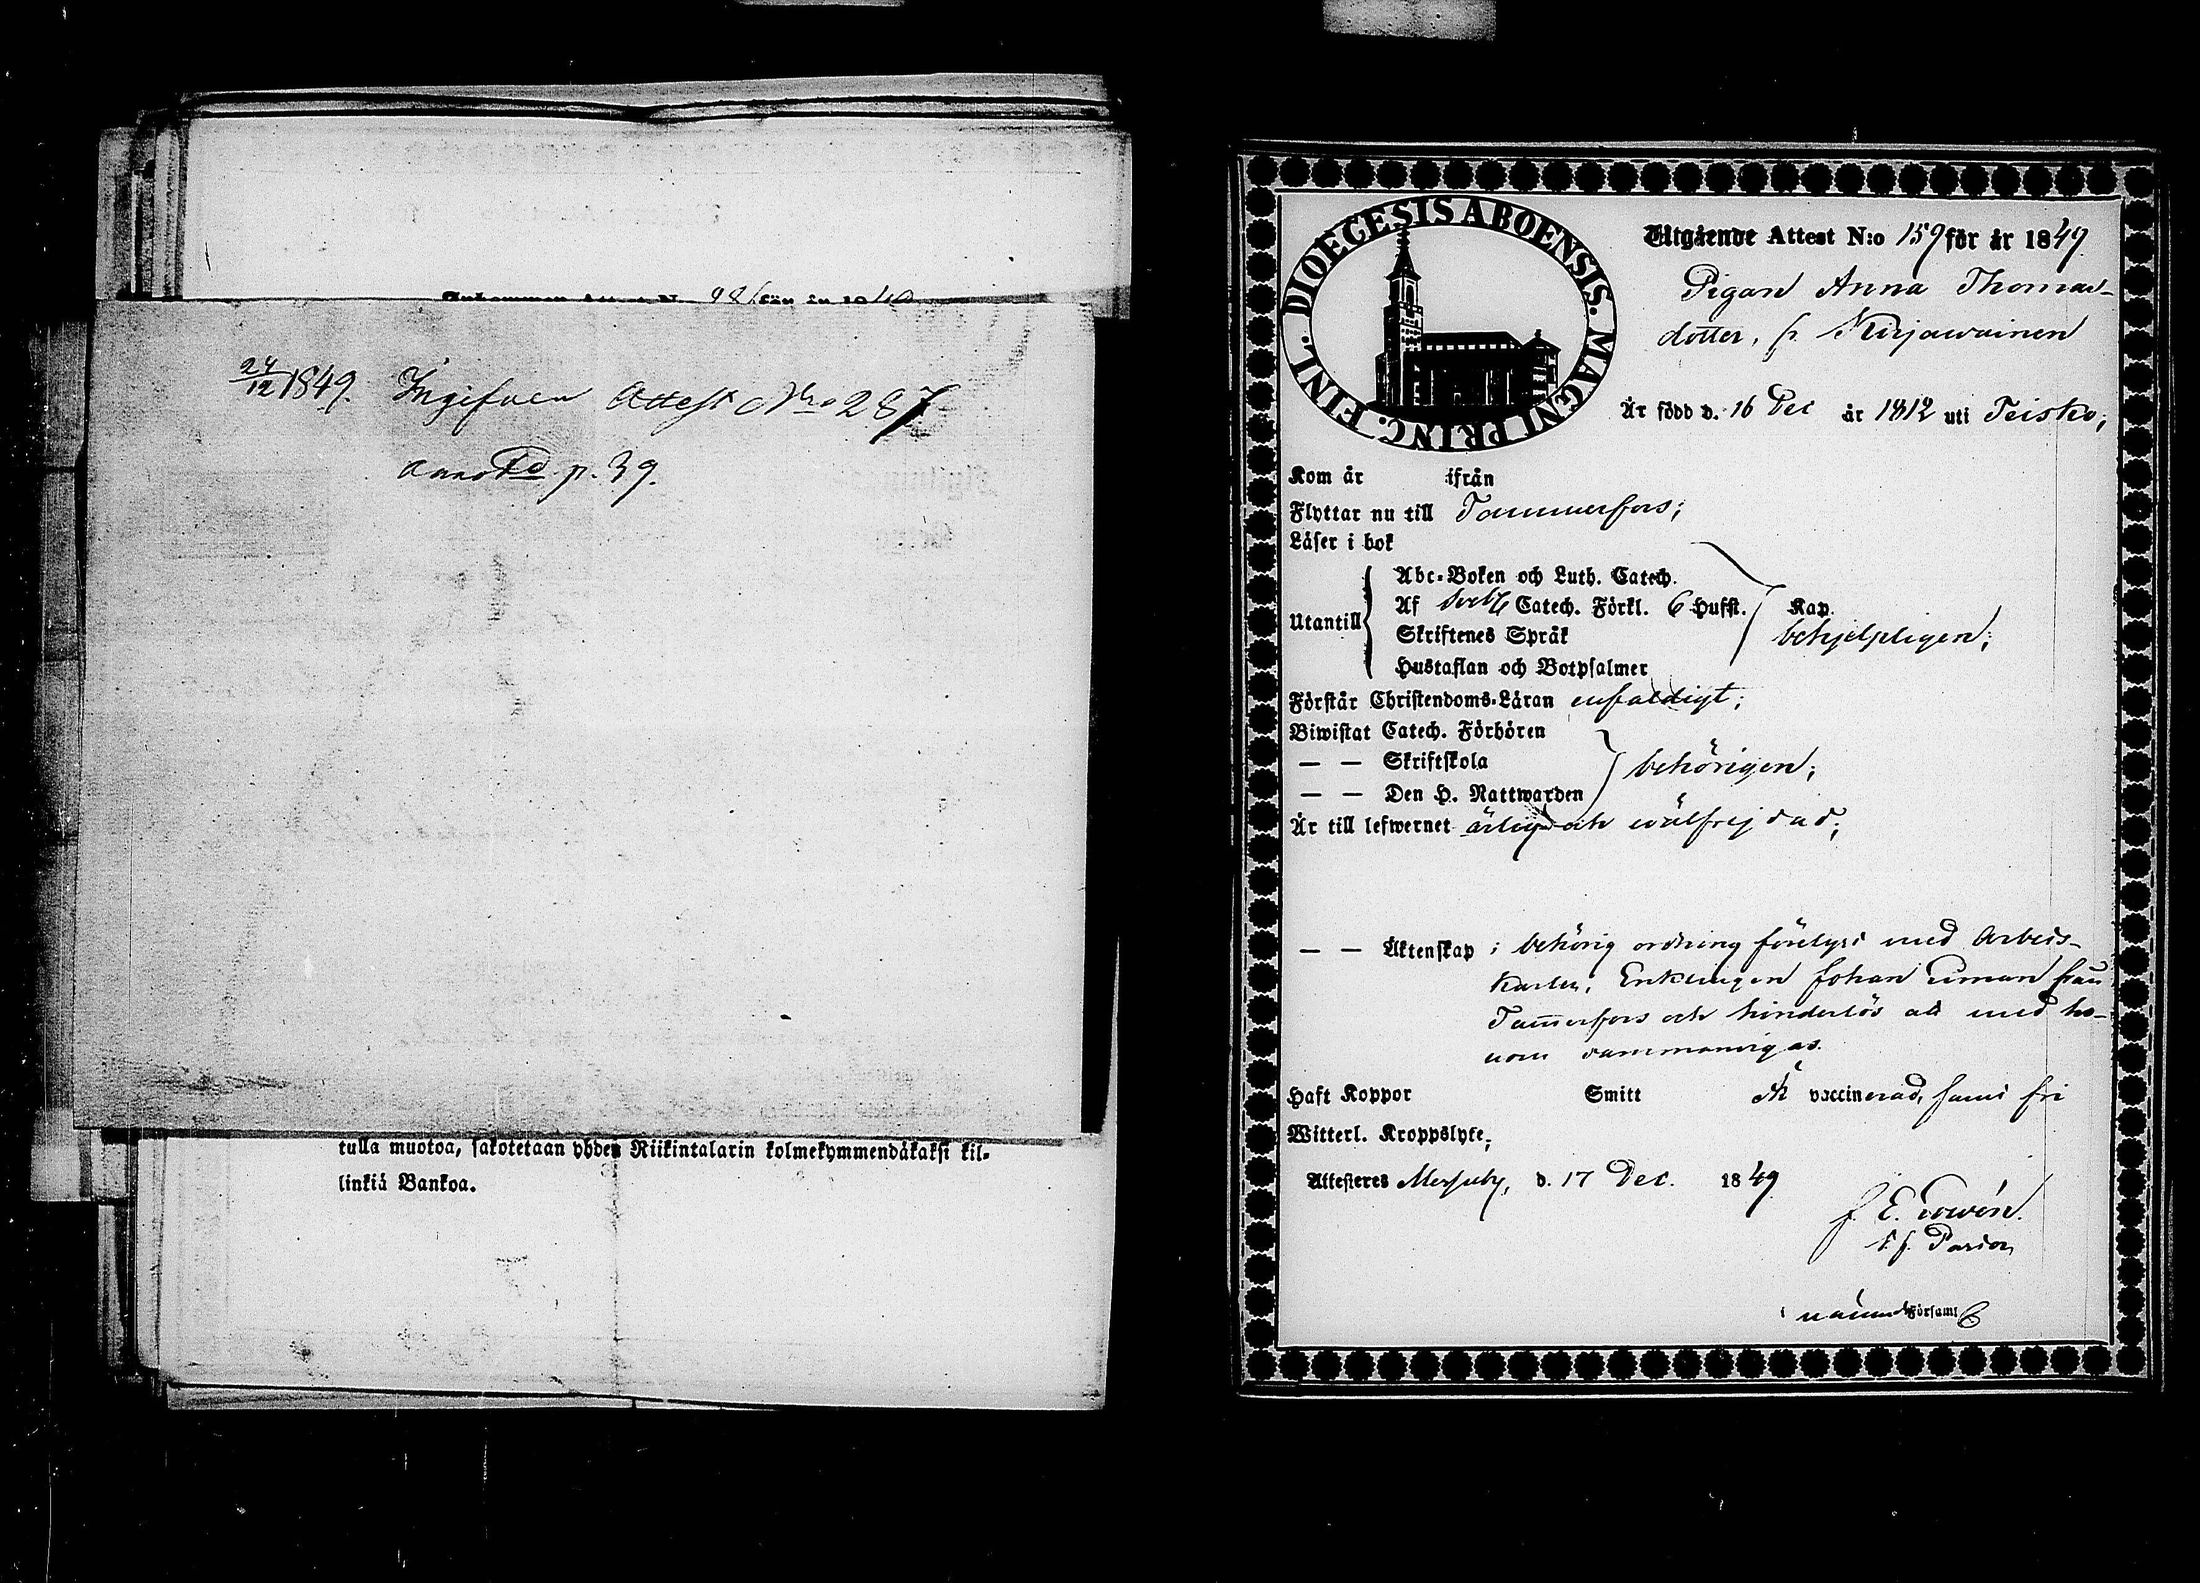 24/12 1849. Ingifven Attest No 287
annotd p. 39.
tulla muotoa, sakotetaan yhden Riikintalarin kolmekymmendäkaksi kil-
linkiä Bankoa.
DIOECESIS ABOENSIS. MAGNI PRINC. FINL.
Utgående Attest N:o 159 för år 1849.
Pigan Anna Thomas-
dotter, f. Kirjawainen
Är född d. 16 Dec år 1812 uti Teisko;
Kom år ifrån
Flyttar nu till Tammerfors;
Läser i bok
Utantill
Abc-Boken och Luth. Catech.
Af Sveb. Catech. Förkl. 6 Hufst. Kap.
Skriftenes Språk behjelpligen;
Hustaflan och Botpsalmer
Förstår Christendoms-Läran enfaldigt;
Biwistat Catech. Förhören
— — Skriftskola behörigen;
— — Den H. Nattwarden
Är till lefwernet ärlig och wälfrejdad;
— — Äktenskap i behörig ordning förelyst med Arbets-
karlen, Enklingen Johan Eman från
Tammerfors och hinderlös att med ho-
nom sammanvigas.
Haft Koppor Smitt Är vaccinerad, samt fri
Witterl. Kroppslyte;
Attesteres Messuby, d. 17 Dec. 1849
t.f. Pastor
i nämnd Församl